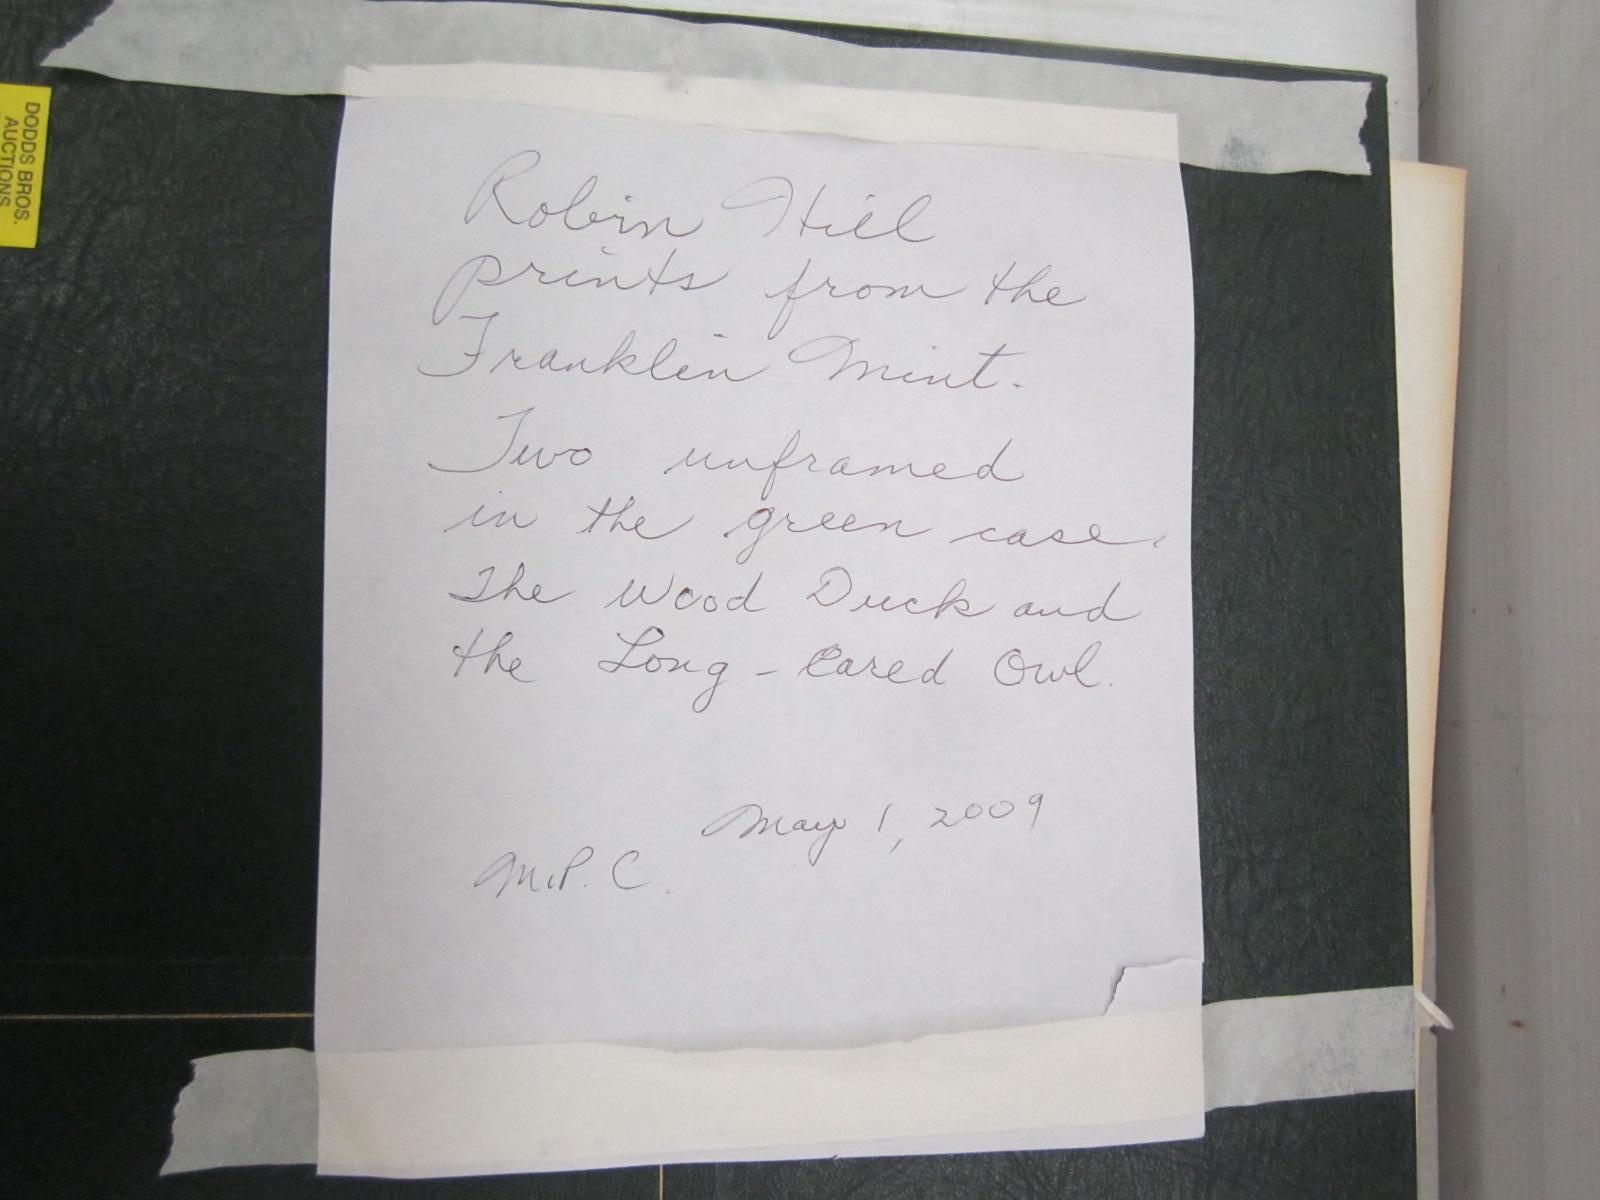 DODDS BROS.
AUCTIONS
Robin Hill
prints from the
Franklin Mint.
Two unframed
in the green case.
The Wood Duck and
the Long-Eared Owl.
May 1, 2009
M.P.C.